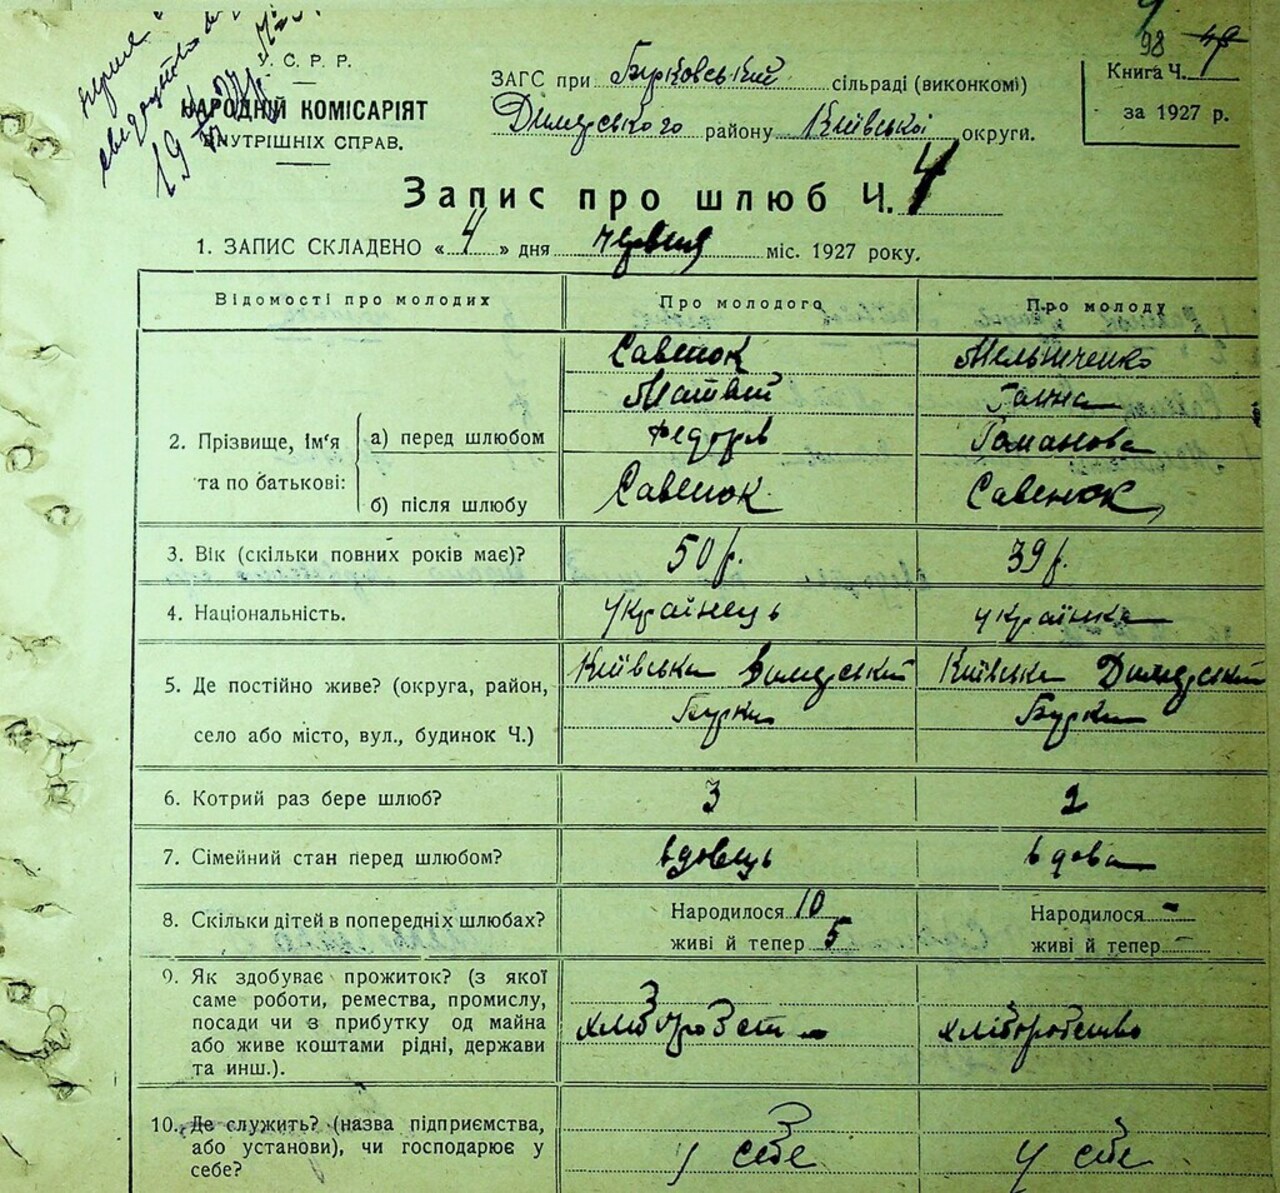 98 49
У. С. Р. Р.
НАРОДНІЙ КОМІСАРІЯТ
ВНУТРІШНІХ СПРАВ.
ЗАГС при Бурковський сільраді (виконкомі)
Димерського району Київської округи.
Книга Ч.
за 1927 р.
Запис про шлюб Ч. 4
1. ЗАПИС СКЛАДЕНО « 4 » дня червня міс. 1927 року.
Відомості про молодих Про молодого Про молоду
Савенок Мельниченко
Матвій Ганна
2. Прізвище, Ім'я та по батькові: а) перед шлюбом Федорів Романова
б) після шлюбу Савенок Савенок
3. Вік (скільки повних років має)? 50 р. 39 р.
4. Національність. Українець українка
5. Де постійно живе? (округа, район, Київська Димерський Київська Димерський
село або місто, вул., будинок Ч.) Бурки Бурки
6. Котрий раз бере шлюб? 3 2
7. Сімейний стан перед шлюбом? вдовець вдова
8. Скільки дітей в попередніх шлюбах? Народилося 10 Народилося -
живі й тепер 5 живі й тепер -
9. Як здобуває прожиток? (з якої
саме роботи, ремества, промислу,
посади чи з прибутку од майна хліборобст хліборобство
або живе коштами рідні, держави
та инш.).
10. Де служить? (назва підприємства,
або установи), чи господарює у у себе у себе
себе?